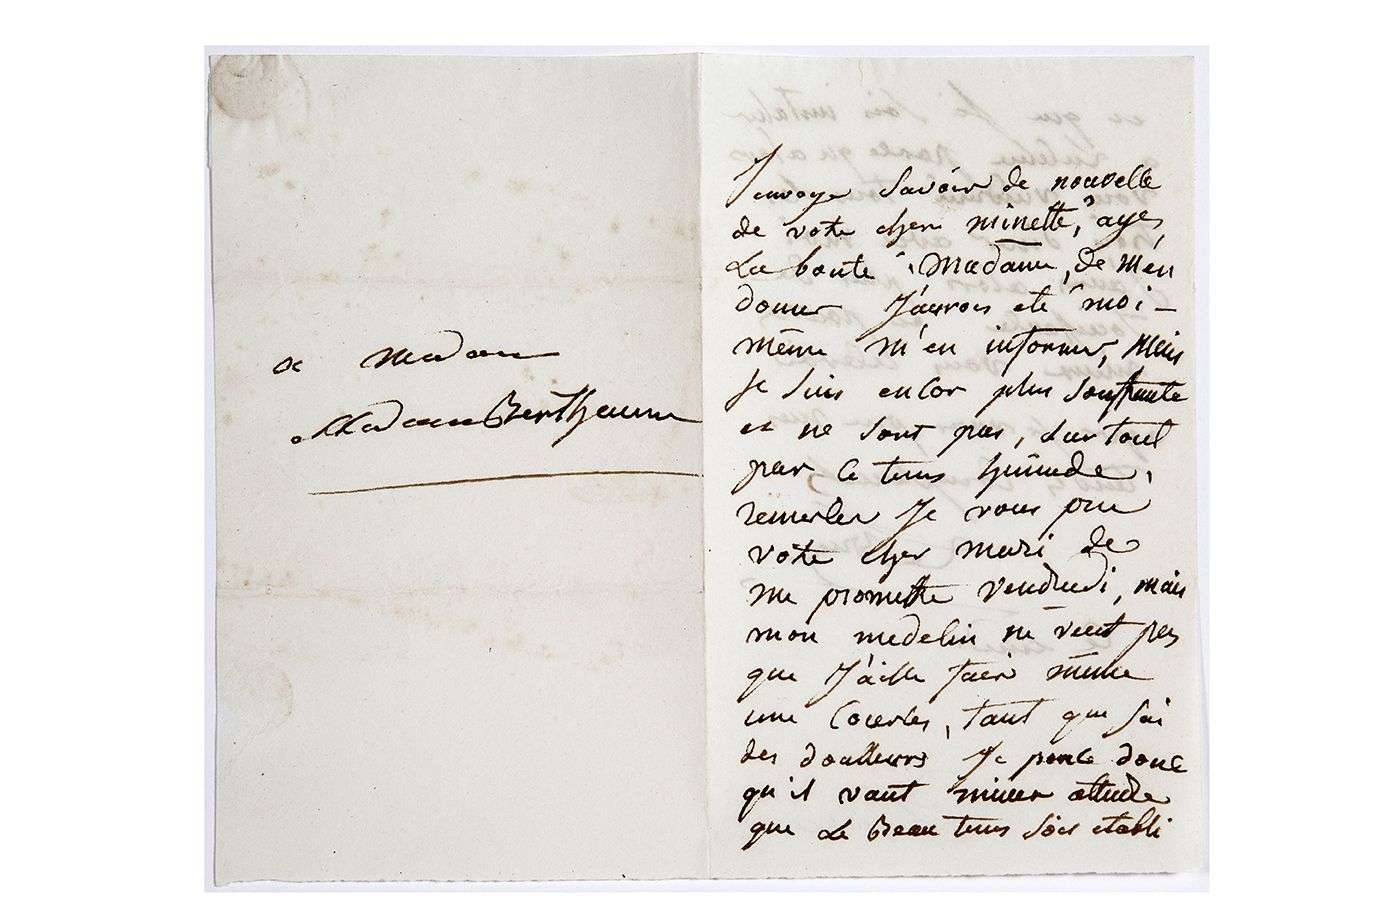 a Madame
Madame Bertheaume
J'envoye savoir de nouvelle
de vote cher minette, ayes
La bonté, Madame, de m'en
donner J'aurois eté moi-
même m'en informer, Mais
je suis encor plus souffrante
et ne sort pas, surtout
par ce tems humide,
remercier Je vous prie
vote cher mari de
me promettre vendredi, mais
mon medecin ne veut pas
que J'aille fair même
une Courses, tant que j'ai
des doulleurs Je pence donc
qu'il vaut mieux attendre
que Le Beau tems sois etabli